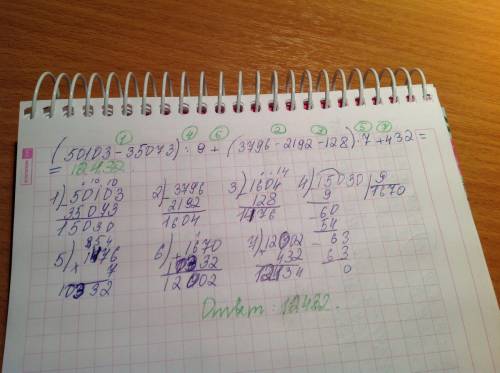 ① ④ ⑥ ② ③ ⑤ ⑦
(50103 - 35073) : 9 + (3796 - 2192 - 128) · 7 + 432 =
= 12432
1) 50103 2) 3796 3) 1604 4) 15030 | 9
35073 2192 128 9 1670
15030 1604 1476 60
54
5) 1476 6) 1670 7) 12002 63
× 7 + 10332 + 432 63
10332 12002 12434 0
Ответ: 12432.